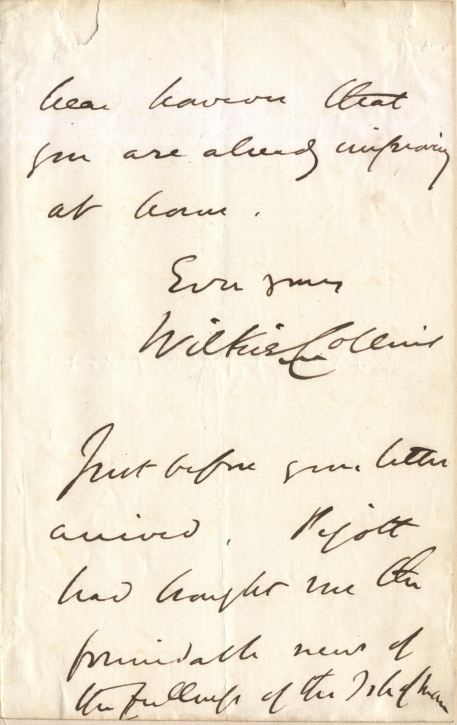 hear however that
you are already improving
at home.
Ever yours
Wilkie Collins
Just before your letter
arrived, Pigott
had brought me the
formidable news of
the fullness of the Isle of Man